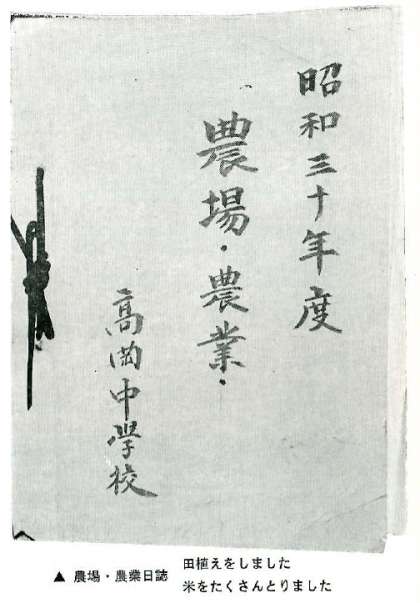 昭和三十年度
農場・農業・
高岡中学校
▲ 農場・農業日誌
田植えをしました
米をたくさんとりました